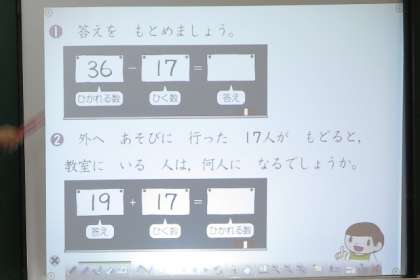 ❶ 答えを もとめましょう。
36 − 17 =
ひかれる数 ひく数 答え
❷ 外へ あそびに 行った 17人が もどると,
教室に いる 人は, 何人に なるでしょうか。
19 + 17 =
答え ひく数 ひかれる数